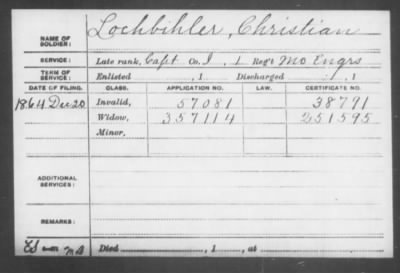 NAME OF SOLDIER: Lochbihler, Christian
SERVICE: Late rank, Capt Co. I, 1 Reg't Mo Engrs
TERM OF SERVICE: Enlisted , 1 Discharged , 1
DATE OF FILING. CLASS. APPLICATION NO. LAW. CERTIFICATE NO.
1864 Dec 20 Invalid, 57081 38791
Widow, 357114 251595
Minor,
ADDITIONAL SERVICES:
REMARKS:
Died , 1 , at